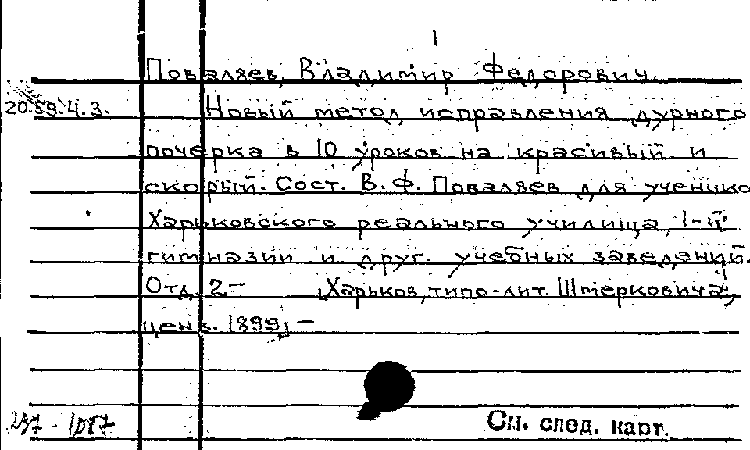 1
Поваляев, Владимир Федорович
20.59.4.3.
Новый метод исправления дурного
почерка в 10 уроков на красивый и
скорый. Сост. В. Ф. Поваляев для ученико
Харьковского реального училища, 1-й
гимназии и друг. учебных заведений.
Отд. 2- [Харьков, типо-лит. Штерковича,
ценз. 1899] -
См. след. карт.